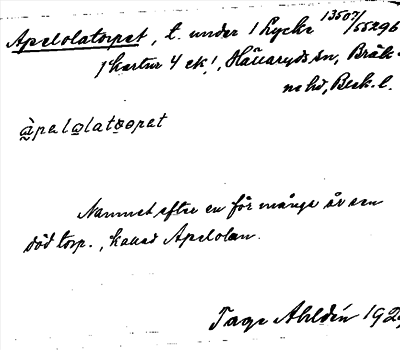 Apelolatorpet, t. under 1 Lycke 13507/55296
1 kartur 4 ek!, Hällaryds sn, Bräk-
ne hd, Blek. l.
àpelolatoorpet
Namnet efter en för många år sen
död torp., kallad Apelolan.
Tage Ahldén 192